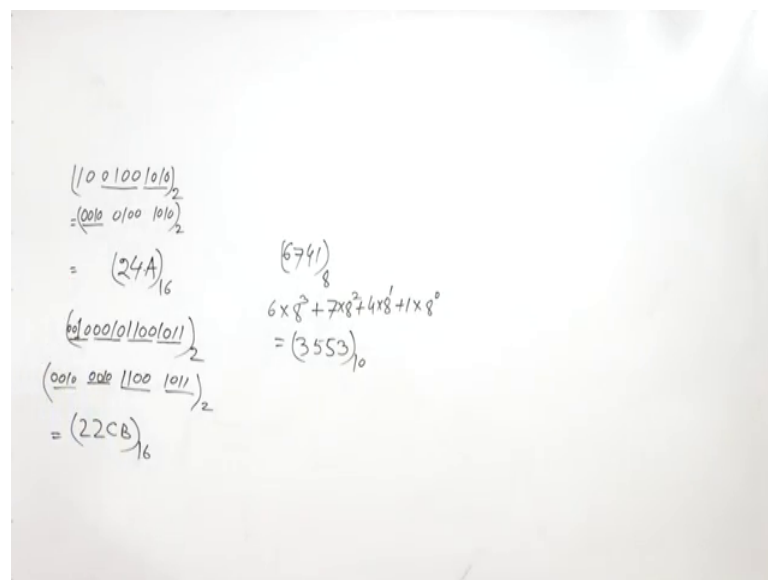 (1001001010)₂
= (0010 0100 1010)₂
= (24A)₁₆
(001000101100 1011)₂
(0010 0010 1100 1011)₂
= (22CB)₁₆
(6741)₈
6×8³+7×8²+4×8¹+1×8⁰
= (3553)₁₀